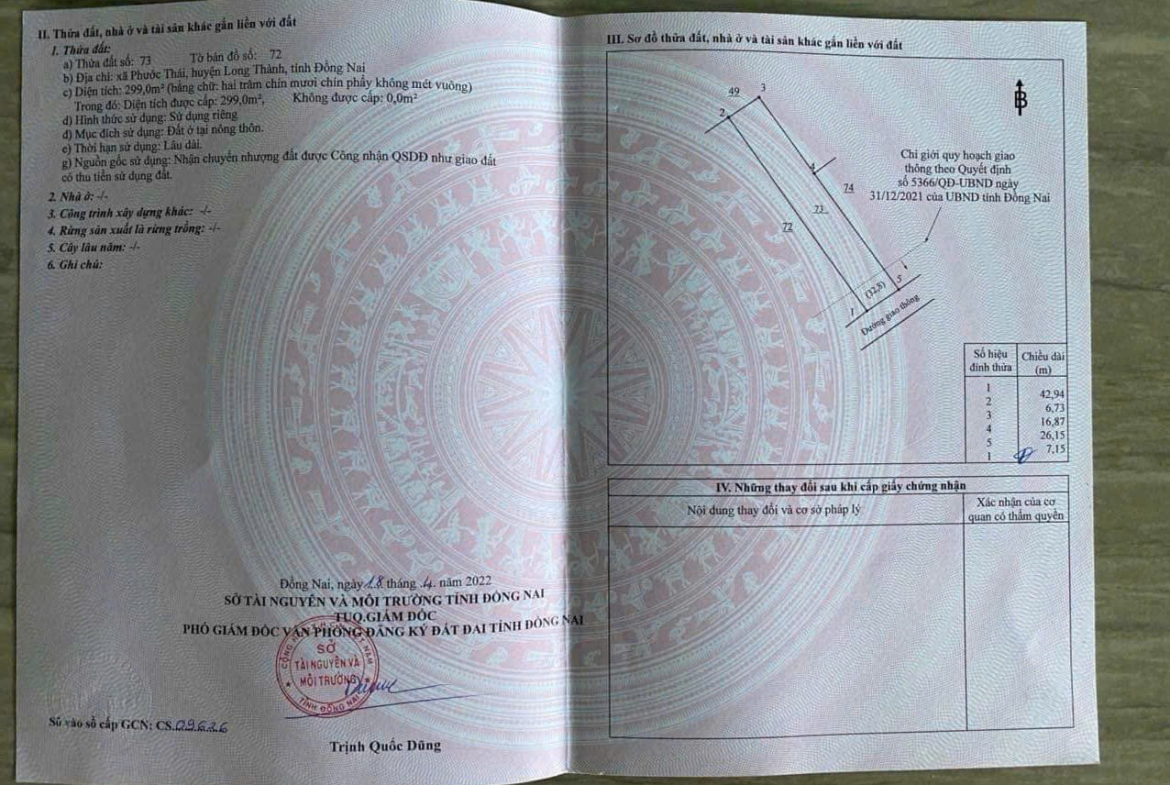 II. Thửa đất, nhà ở và tài sản khác gắn liền với đất
1. Thửa đất:
a) Thửa đất số: 73 Tờ bản đồ số: 72
b) Địa chỉ: xã Phước Thái, huyện Long Thành, tỉnh Đồng Nai
c) Diện tích: 299,0m² (bằng chữ: hai trăm chín mươi chín phẩy không mét vuông)
Trong đó: Diện tích được cấp: 299,0m², Không được cấp: 0,0m²
d) Hình thức sử dụng: Sử dụng riêng
đ) Mục đích sử dụng: Đất ở tại nông thôn.
e) Thời hạn sử dụng: Lâu dài.
g) Nguồn gốc sử dụng: Nhận chuyển nhượng đất được Công nhận QSDĐ như giao đất
có thu tiền sử dụng đất.
2. Nhà ở: -/-
3. Công trình xây dựng khác: -/-
4. Rừng sản xuất là rừng trồng: -/-
5. Cây lâu năm: -/-
6. Ghi chú:
Đồng Nai, ngày 18 tháng .4. năm 2022
SỞ TÀI NGUYÊN VÀ MÔI TRƯỜNG TỈNH ĐỒNG NAI
TUQ.GIÁM ĐỐC
PHÓ GIÁM ĐỐC VĂN PHÒNG ĐĂNG KÝ ĐẤT ĐAI TỈNH ĐỒNG NAI
SỞ
TÀI NGUYÊN VÀ
MÔI TRƯỜNG
TỈNH ĐỒNG NAI
Số vào sổ cấp GCN: CS.09626
Trịnh Quốc Dũng
III. Sơ đồ thửa đất, nhà ở và tài sản khác gắn liền với đất
B
49
3
2
4
74
73
72
Chỉ giới quy hoạch giao
thông theo Quyết định
số 5366/QĐ-UBND ngày
31/12/2021 của UBND tỉnh Đồng Nai
(32,8)
5
1
Đường giao thông
Số hiệu
đỉnh thửa
Chiều dài
(m)
1
42,94
2
6,73
3
16,87
4
26,15
5
7,15
1
IV. Những thay đổi sau khi cấp giấy chứng nhận
Nội dung thay đổi và cơ sở pháp lý
Xác nhận của cơ
quan có thẩm quyền